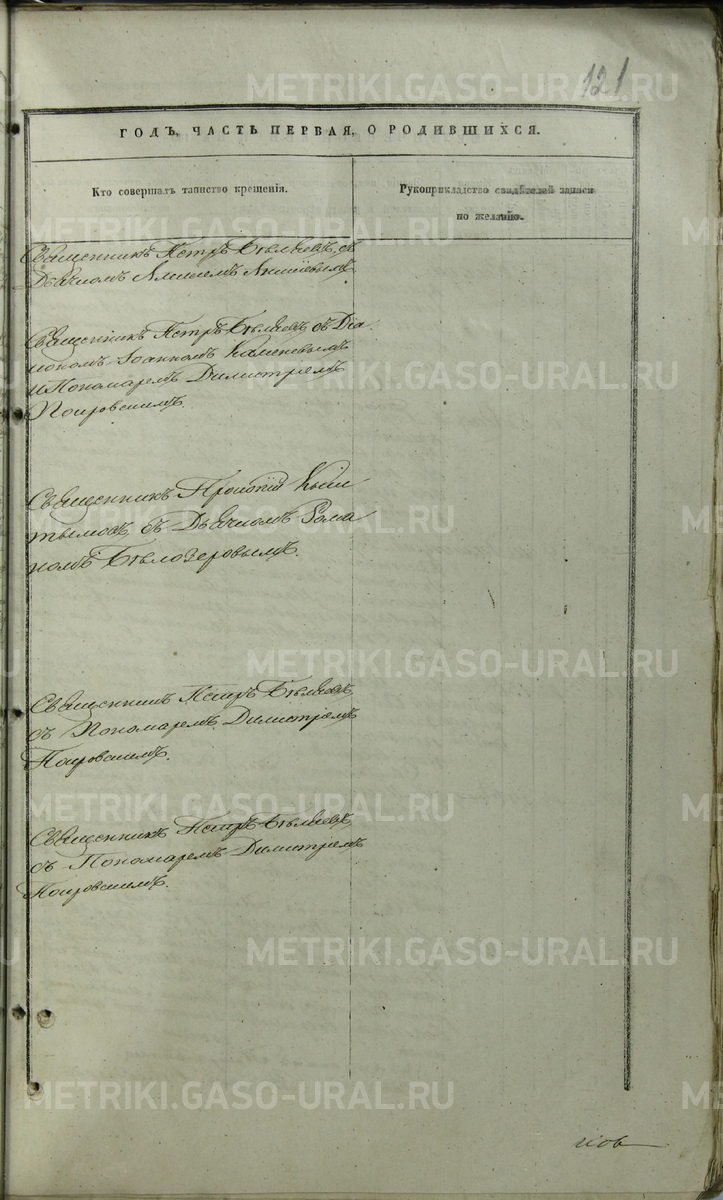 121
ГОДЪ, ЧАСТЬ ПЕРВАЯ, О РОДИВШИХСЯ.
Кто совершалъ таинство крещенія.
Рукоприкладство свидѣтелей записи
по желанію.
Священникъ Петръ Бѣляевъ, съ
Дьячкомъ Алексѣемъ
Священникъ Петръ Бѣляевъ съ Діа
кономъ Іоанномъ Каменевымъ
и Пономаремъ Димитріемъ
Покровскимъ.
Священникъ Прокопій
съ Дьячкомъ Рома
номъ Бѣлозеровымъ.
Священникъ Петръ Бѣляевъ,
съ Пономаремъ Димитріемъ
Покровскимъ.
Священникъ Петръ Бѣляевъ,
съ Пономаремъ Димитріемъ
Покровскимъ.
METRIKI.GASO-URAL.RU